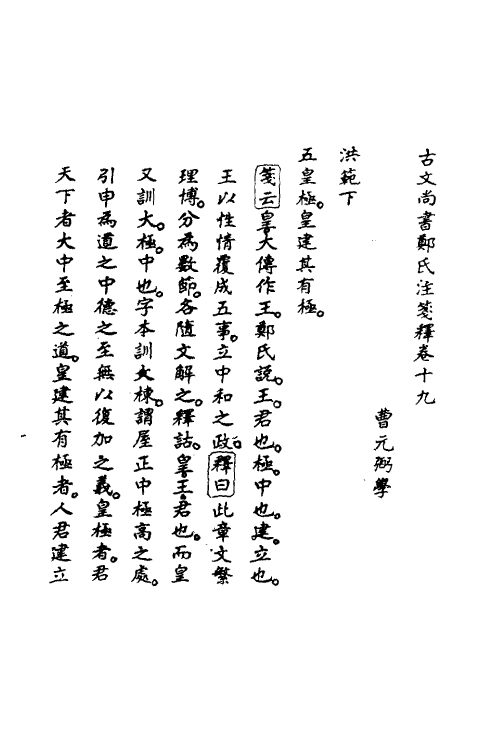 古文尚書鄭氏注箋釋卷十九
曹元弼學
洪範下
五皇極。皇建其有極。
箋云皇大傳作王。鄭氏說。王君也。極。中也。建。立也。
王以性情覆成五事。立中和之政。釋曰此章文繁
理博。分為數節。各隨文解之。釋詁。皇王。君也。而皇
又訓大。極。中也。字本訓棟。謂屋正中極高之處。
引申為道之中德之至無以復加之義。皇極者。君
天下者大中至極之道。皇建其有極者。人君建立